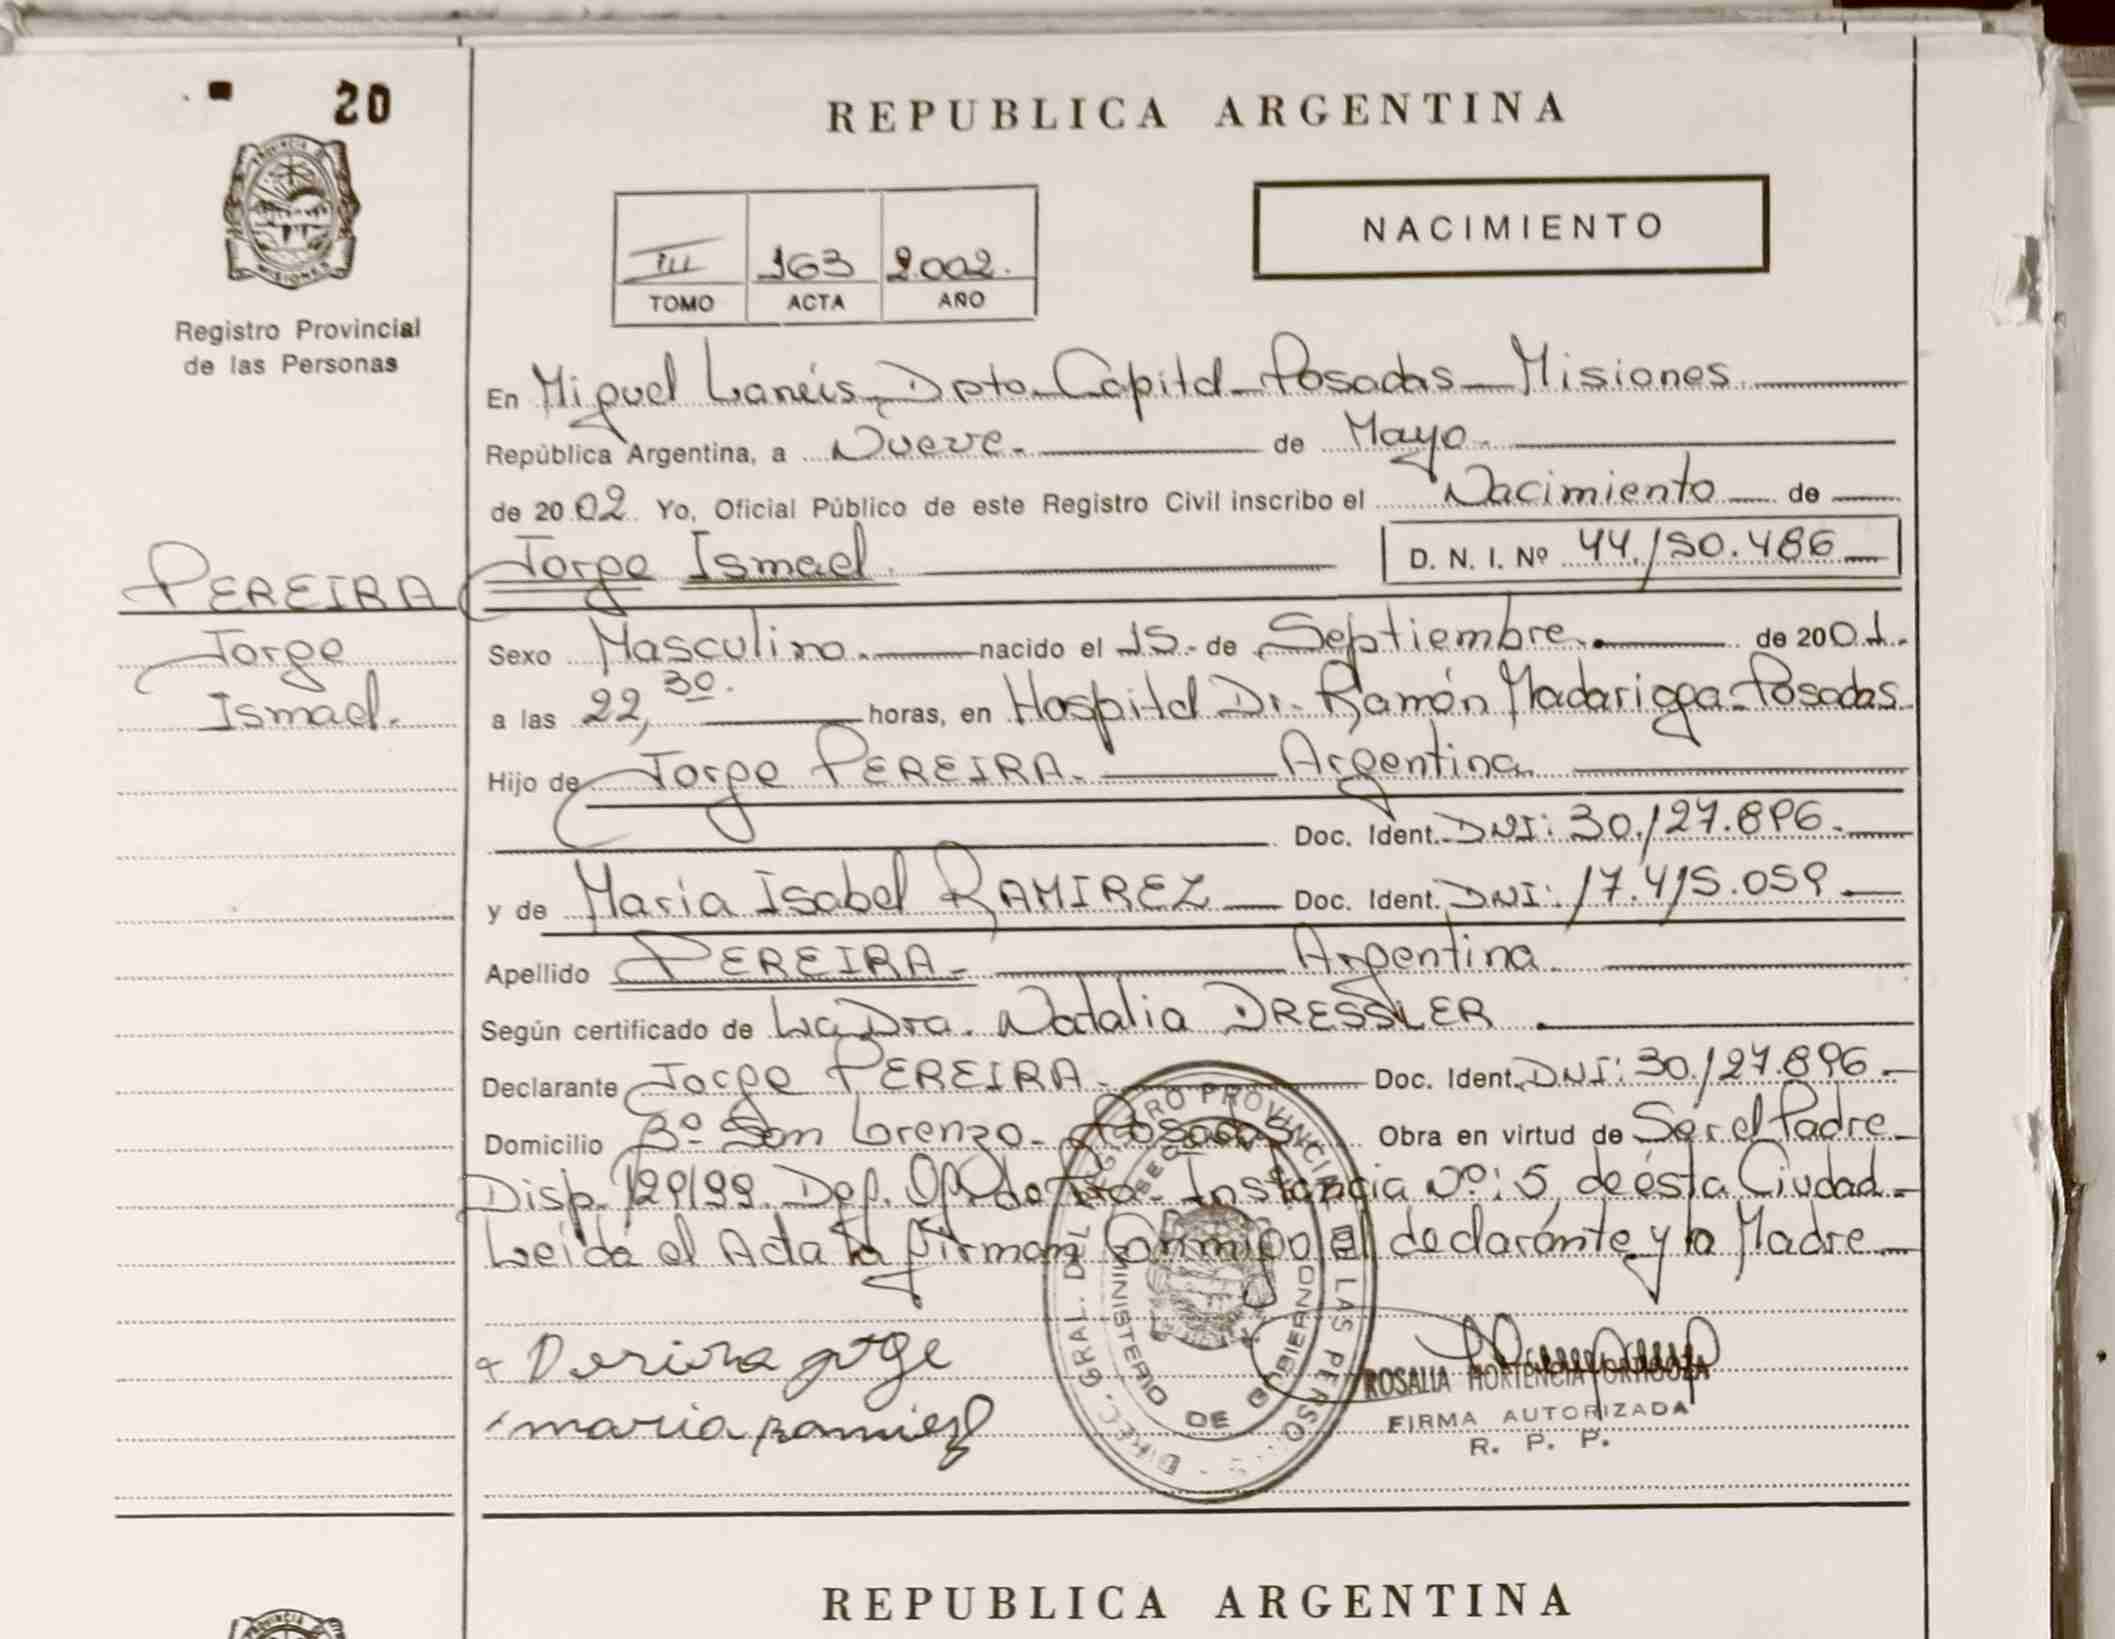 20
REPUBLICA ARGENTINA
NACIMIENTO
III 163 2.002.
TOMO ACTA AÑO
Registro Provincial
de las Personas
En Miguel Lanús, Dpto. Capital - Posadas - Misiones
República Argentina, a Nueve. de Mayo.
de 2002. Yo, Oficial Público de este Registro Civil inscribo el Nacimiento de
Jorge Ismael. D. N. I. Nº 44.150.486
PEREIRA
Jorge
Ismael.
Sexo Masculino. nacido el 15. de Septiembre. de 2001.
a las 22,30. horas, en Hospital Dr. Ramón Madariaga - Posadas
Hijo de Jorge PEREIRA. Argentina.
Doc. Ident. DNI: 30.127.896.
y de Maria Isabel RAMIREZ Doc. Ident. DNI: 17.415.059.
Apellido PEREIRA. Argentina.
Según certificado de La Dra. Natalia DRESSLER
Declarante Jorge PEREIRA. Doc. Ident. DNI: 30.127.896.
Domicilio Bº San Lorenzo - Posadas. Obra en virtud de Ser el Padre
Disp. 129/99. Def. Of. de Pra. Instancia Nº: 5, de ésta Ciudad.
Leída el Acta la firman Conmigo el declarante y la Madre
Pereira jorge
maria ramirez
DIREC. GRAL. DEL REGISTRO PROVINCIAL DE LAS PERSONAS
MINISTERIO DE GOBIERNO
ROSALIA HORTENCIA
FIRMA AUTORIZADA
R. P. P.
REPUBLICA ARGENTINA